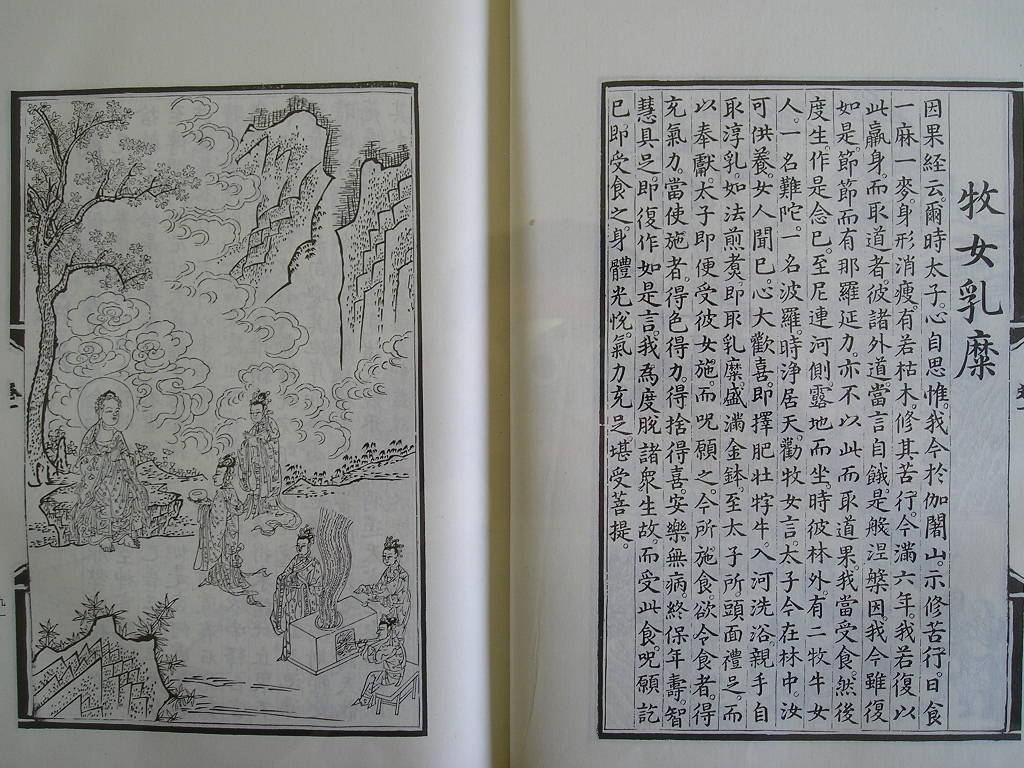 牧女乳糜
因果經云。爾時太子。心自思惟。我今於伽闍山。示修苦行。日食
一麻一麥。身形消瘦。有若枯木。修其苦行。今滿六年。我若復以
此羸身。而取道者。彼諸外道。當言自餓。是般涅槃因。我今雖復
如是。節節而有那羅延力。亦不以此而取道果。我當受食。然後
度生。作是念已。至尼連河側。露地而坐。時彼林外。有二牧牛女
人。一名難陀。一名波羅。時淨居天。勸牧女言。太子今在林中。汝
可供養。女人聞已。心大歡喜。即擇肥壯牸牛。入河洗浴。親手自
取淳乳。如法煎煑。即取乳糜。盛滿金鉢。至太子所。頭面禮足。而
以奉獻。太子即便受彼女施。而呪願之。今所施食。欲令食者。得
充氣力。當使施者。得色得力。得捨得喜。安樂無病。終保年壽。智
慧具足。即復作如是言。我為度脫諸衆生故。而受此食。呪願訖
已。即受食之。身體光悅。氣力充足。堪受菩提。